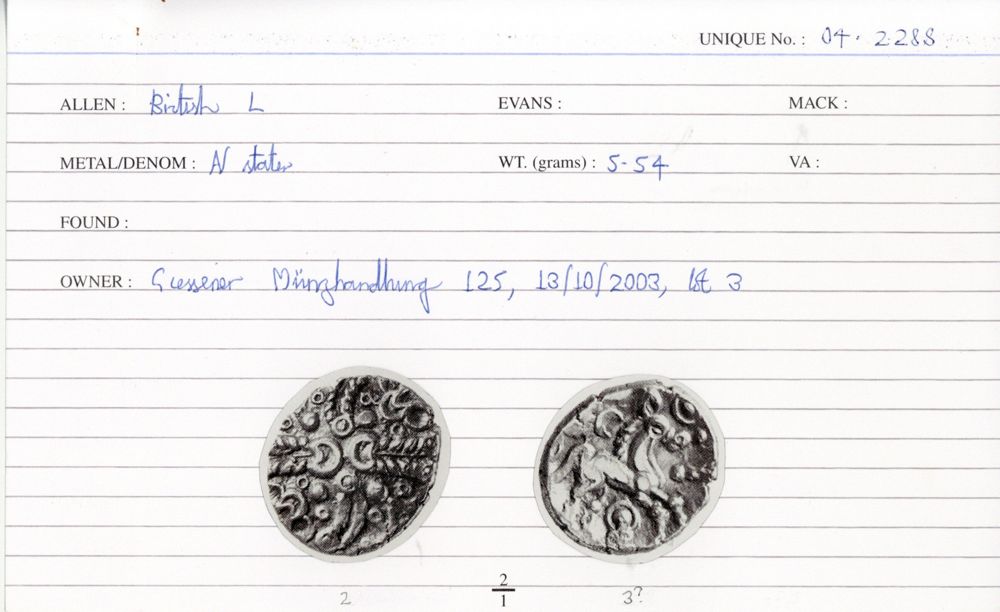 UNIQUE No. : 04. 2288
ALLEN : British L EVANS : MACK :
METAL/DENOM : N stater WT. (grams) : 5.54 VA :
FOUND :
OWNER : Giessener Münzhandlung 125, 13/10/2003, lot 3
2 2/1 3?